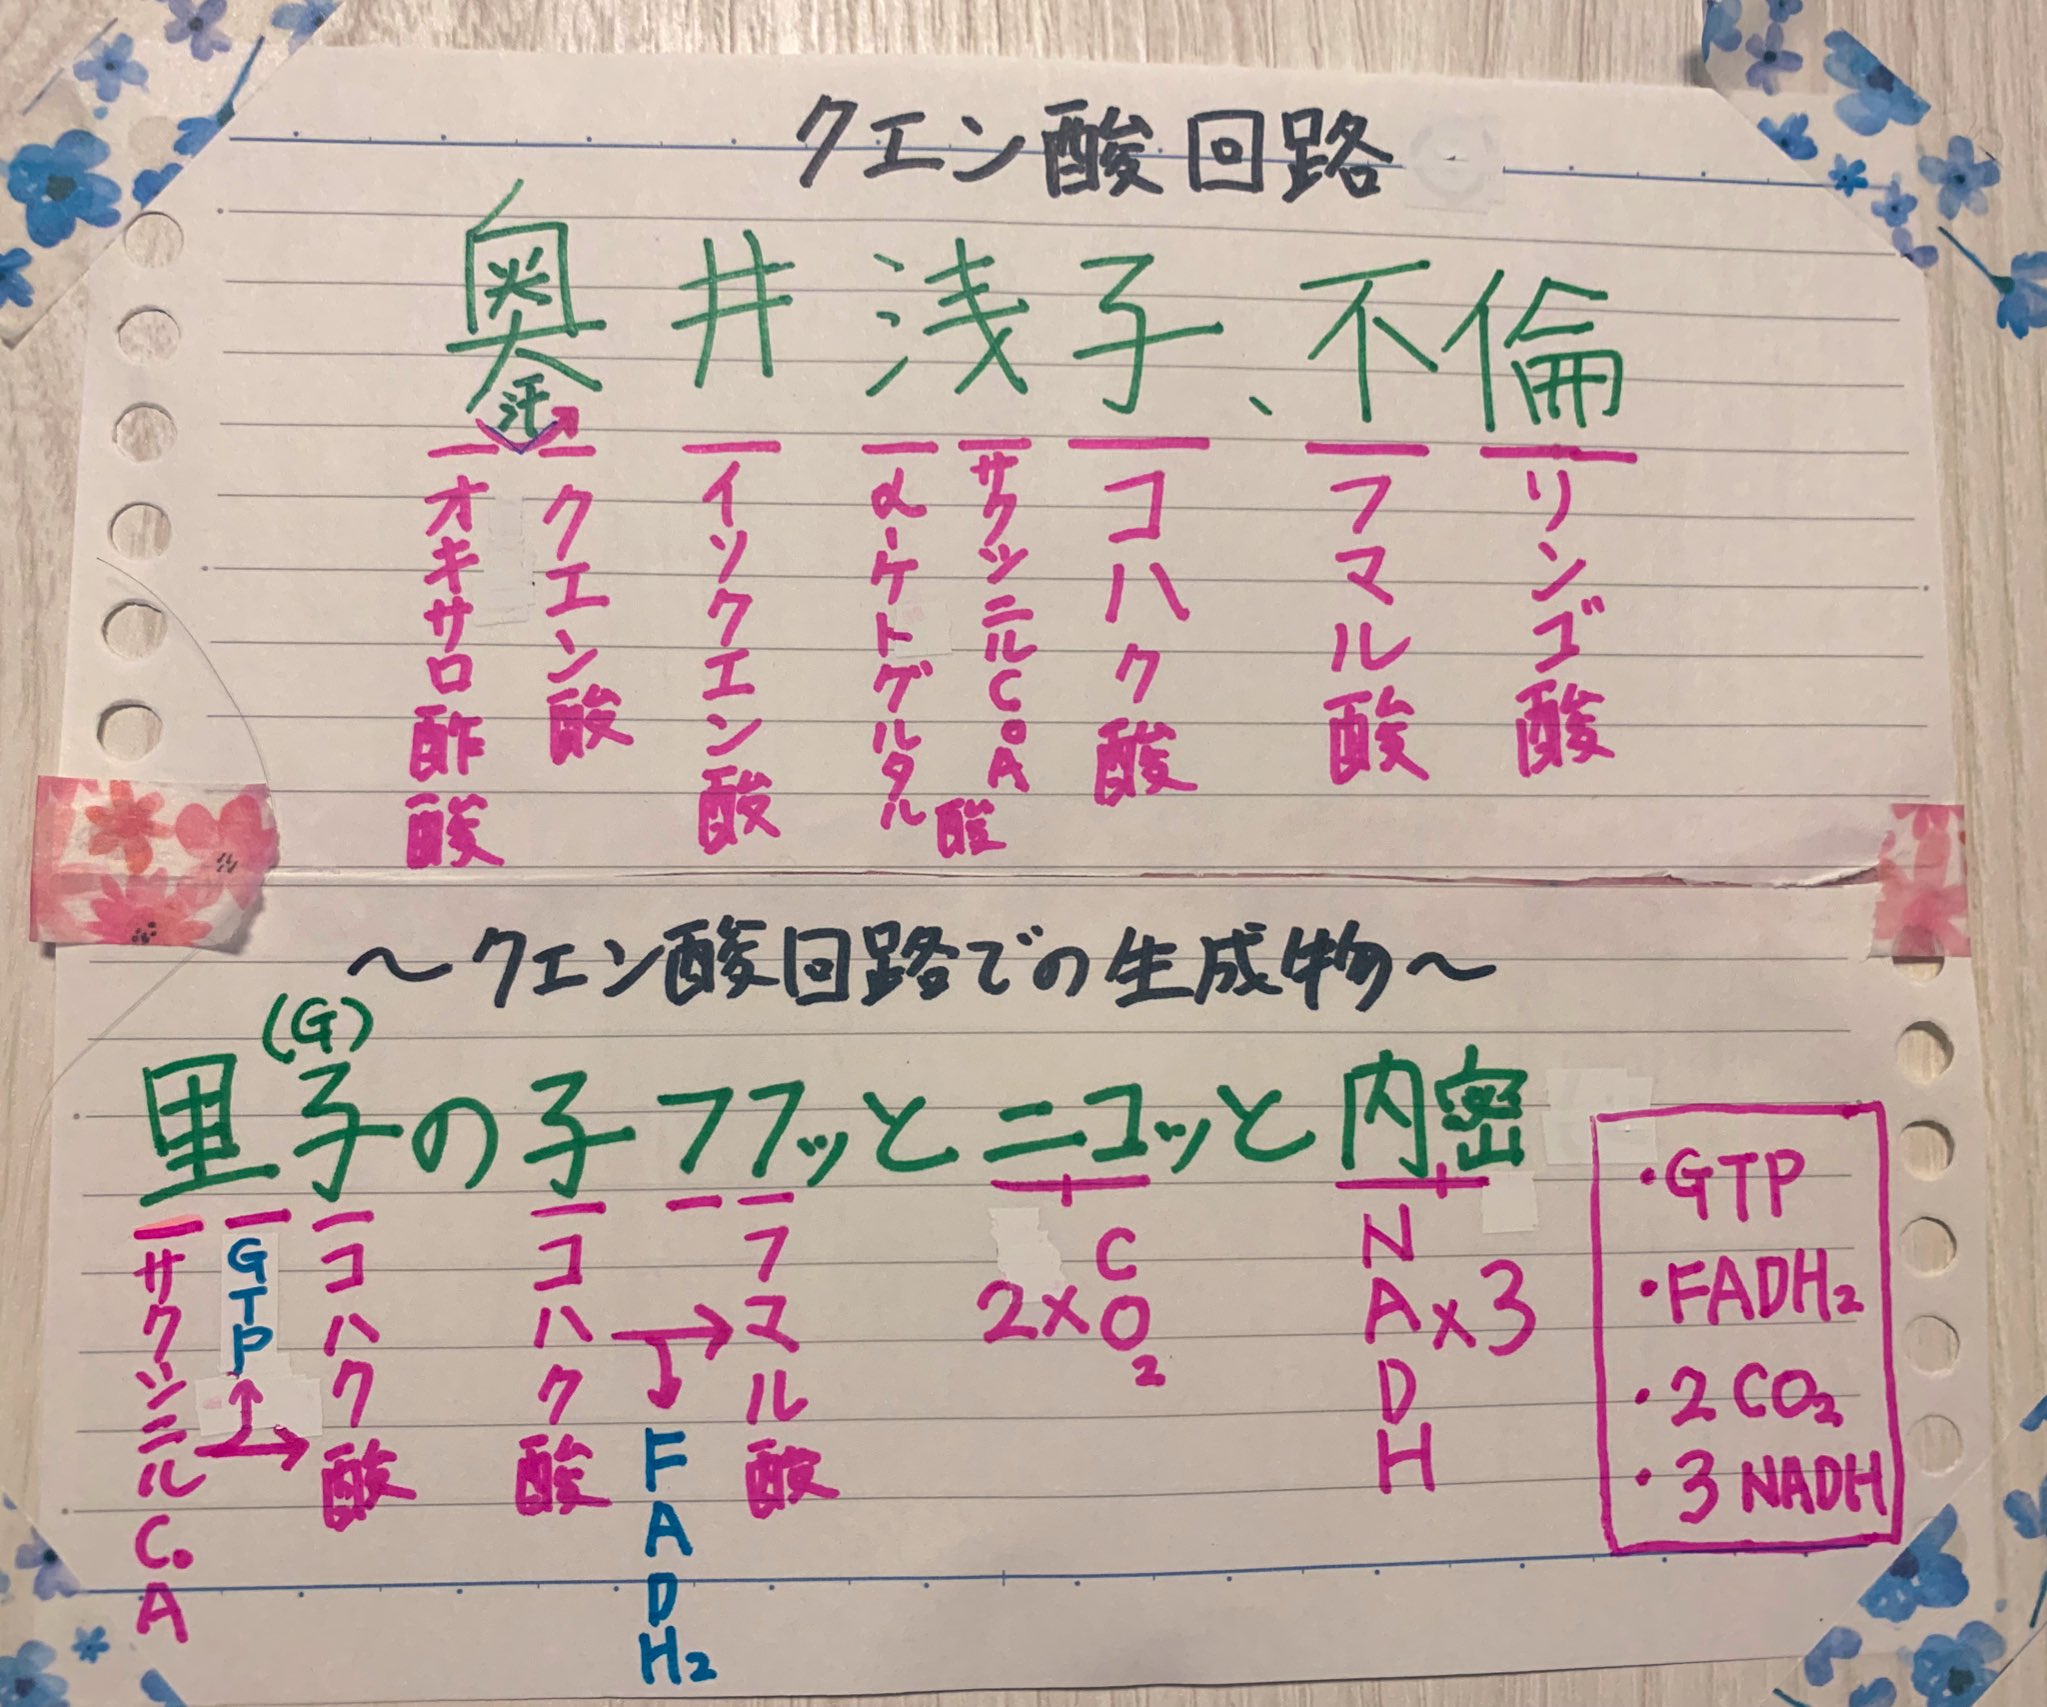 クエン酸回路
奥井浅子、不倫
汗
オキサロ酢酸
クエン酸
イソクエン酸
α-ケトグルタル酸
サクシニルCoA
コハク酸
フマル酸
リンゴ酸
〜クエン酸回路での生成物〜
(G)
里子の子フフッとニコッと内密
サクシニルCoA
GTP
コハク酸
コハク酸
FADH2
フマル酸
2×CO2
NADH×3
・GTP
・FADH2
・2CO2
・3NADH